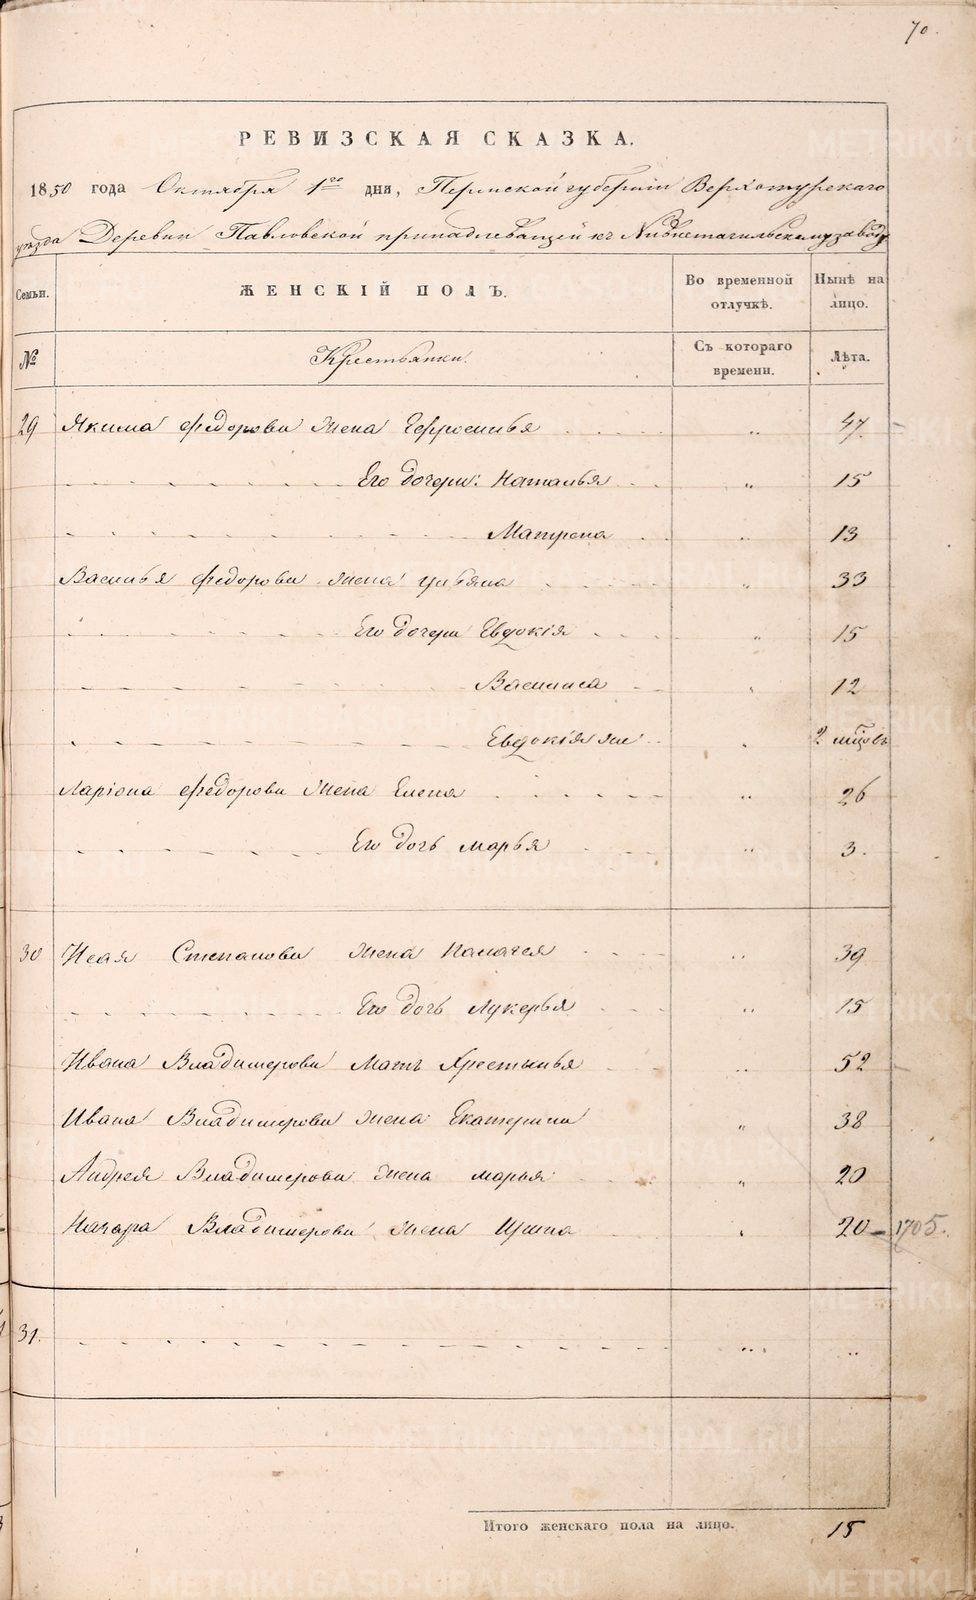 70.
РЕВИЗСКАЯ СКАЗКА.
1850 года Октября 1го дня, Пермской губернии Верхотурского
уезда Деревни Павловской принадлежащей къ Нижнетагильскому заводу
Семьи. ЖЕНСКІЙ ПОЛЪ. Во временной отлучкѣ. Нынѣ на лицо.
№ Крестьянки. Съ котораго времени. Лѣта.
29 Якима Федорова жена Ефросинья 47.
Его дочери: Наталья 15
Матрена 13
Василья Федорова жена Ульяна 33
Его дочери Евдокія 15
Василиса 12
Евдокія же 2 мѣсцовъ
Ларіона Федорова жена Елена 26
Его дочь Марья 3.
30 Исая Степанова жена Палагея 39
Его дочь Лукерья 15
Ивана Владимерова Мать Хрестинья 52
Ивана Владимерова жена Екатерина 38
Андрея Владимерова жена Марья 20
Назара Владимерова жена Ирина 20 - 1705.
31.
Итого женскаго пола на лицо. 15
METRIKI.GASO-URAL.RU